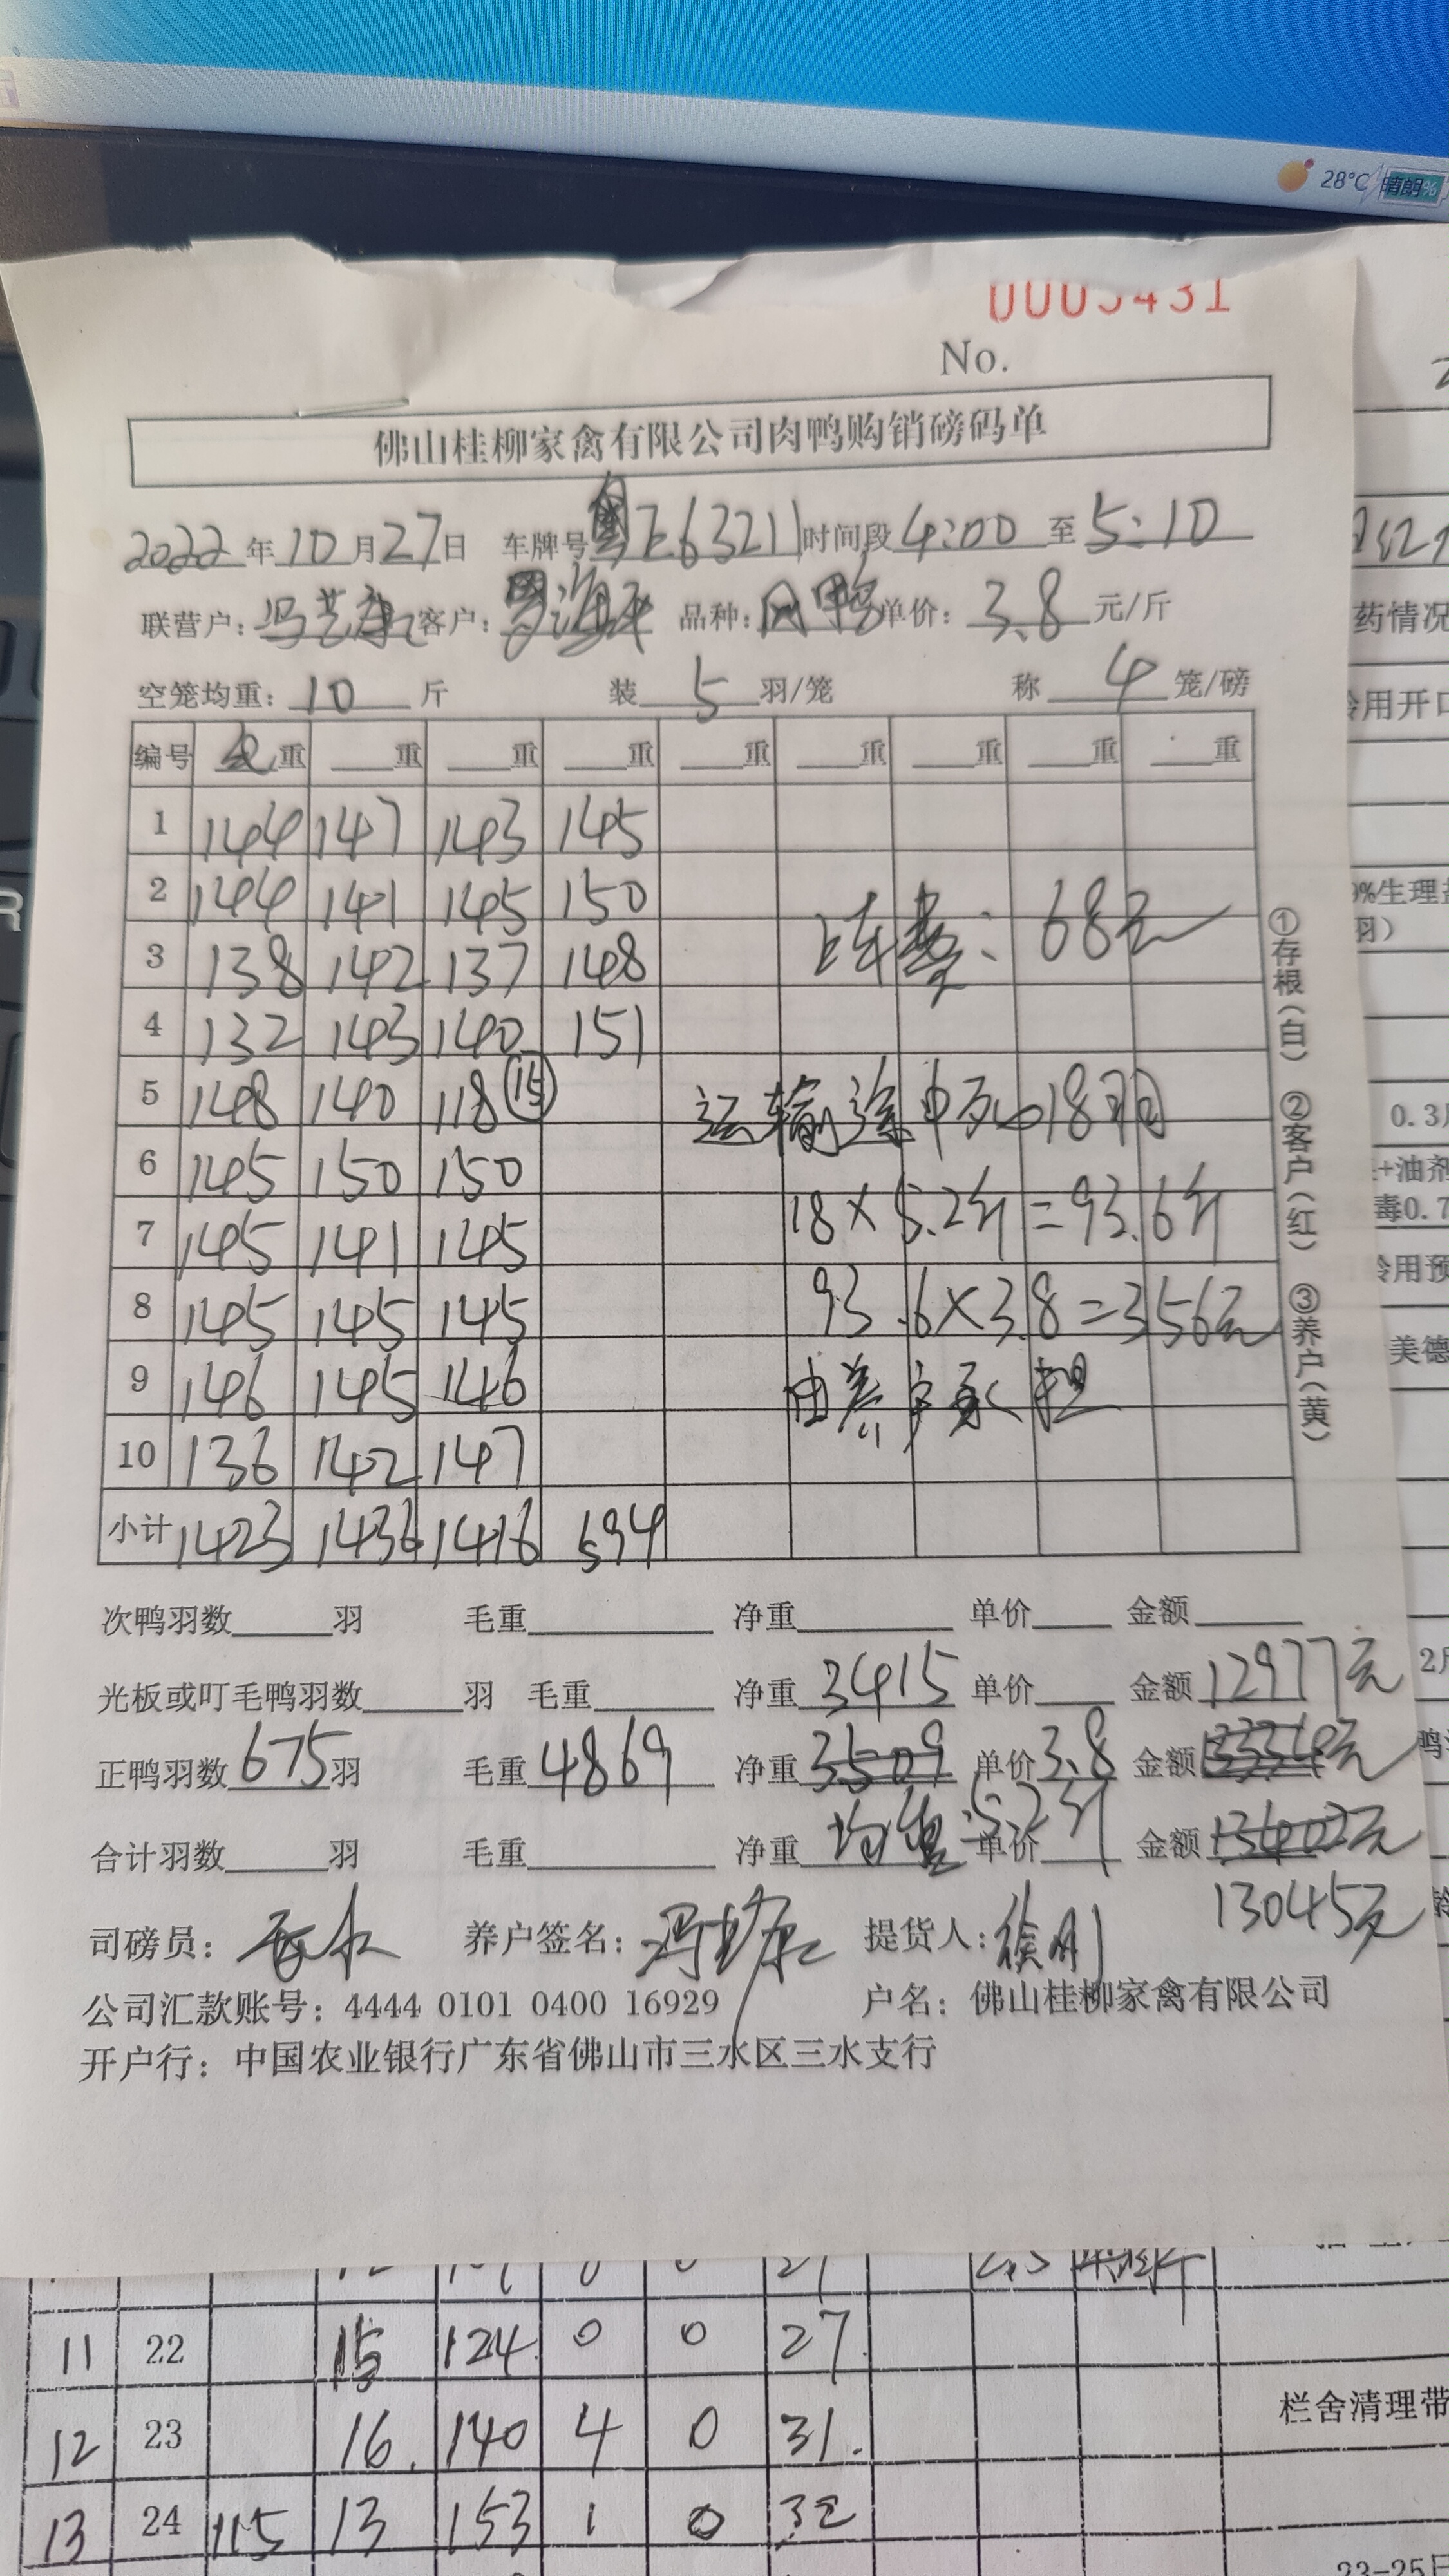 28°C 晴朗
0005431
No.
佛山桂柳家禽有限公司肉鸭购销磅码单
2022 年 10 月 27 日 车牌号 粤E63211 时间段 4:00 至 5:10
联营户: 冯艺康 客户: 罗海平 品种: 肉鸭 单价: 3.8 元/斤
空笼均重: 10 斤 装 5 羽/笼 称 4 笼/磅
编号 毛重 重 重 重 重 重 重 重 重
1 144 147 143 145
2 144 141 145 150
上车费: 68元
3 138 142 137 148
4 132 143 140 151
5 148 140 118 ⑮
运输途中死亡18羽
6 145 150 150
18×5.2斤=93.6斤
7 145 141 145
8 145 145 145
93.6×3.8=356元
9 146 145 146
由养户承担
10 136 142 147
小计 1423 1436 1416 594
①存根(白) ②客户(红) ③养户(黄)
次鸭羽数 羽 毛重 净重 单价 金额
光板或叮毛鸭羽数 羽 毛重 净重 3415 单价 金额 12977元
正鸭羽数 675 羽 毛重 4869 净重 3509 单价 3.8 金额 13334元
合计羽数 羽 毛重 净重 均重:5.2斤 单价 金额 13402元
13045元
司磅员: 养户签名: 冯艺康 提货人: 徐刚
公司汇款账号: 4444 0101 0400 16929 户名: 佛山桂柳家禽有限公司
开户行: 中国农业银行广东省佛山市三水区三水支行
药情况
用开口
9%生理盐
羽）
0.3
+油剂
毒0.7
用预
美德
11 22 15 124 0 0 27
12 23 16 140 4 0 31
栏舍清理带
13 24 115 13 153 1 0 32
23-25日